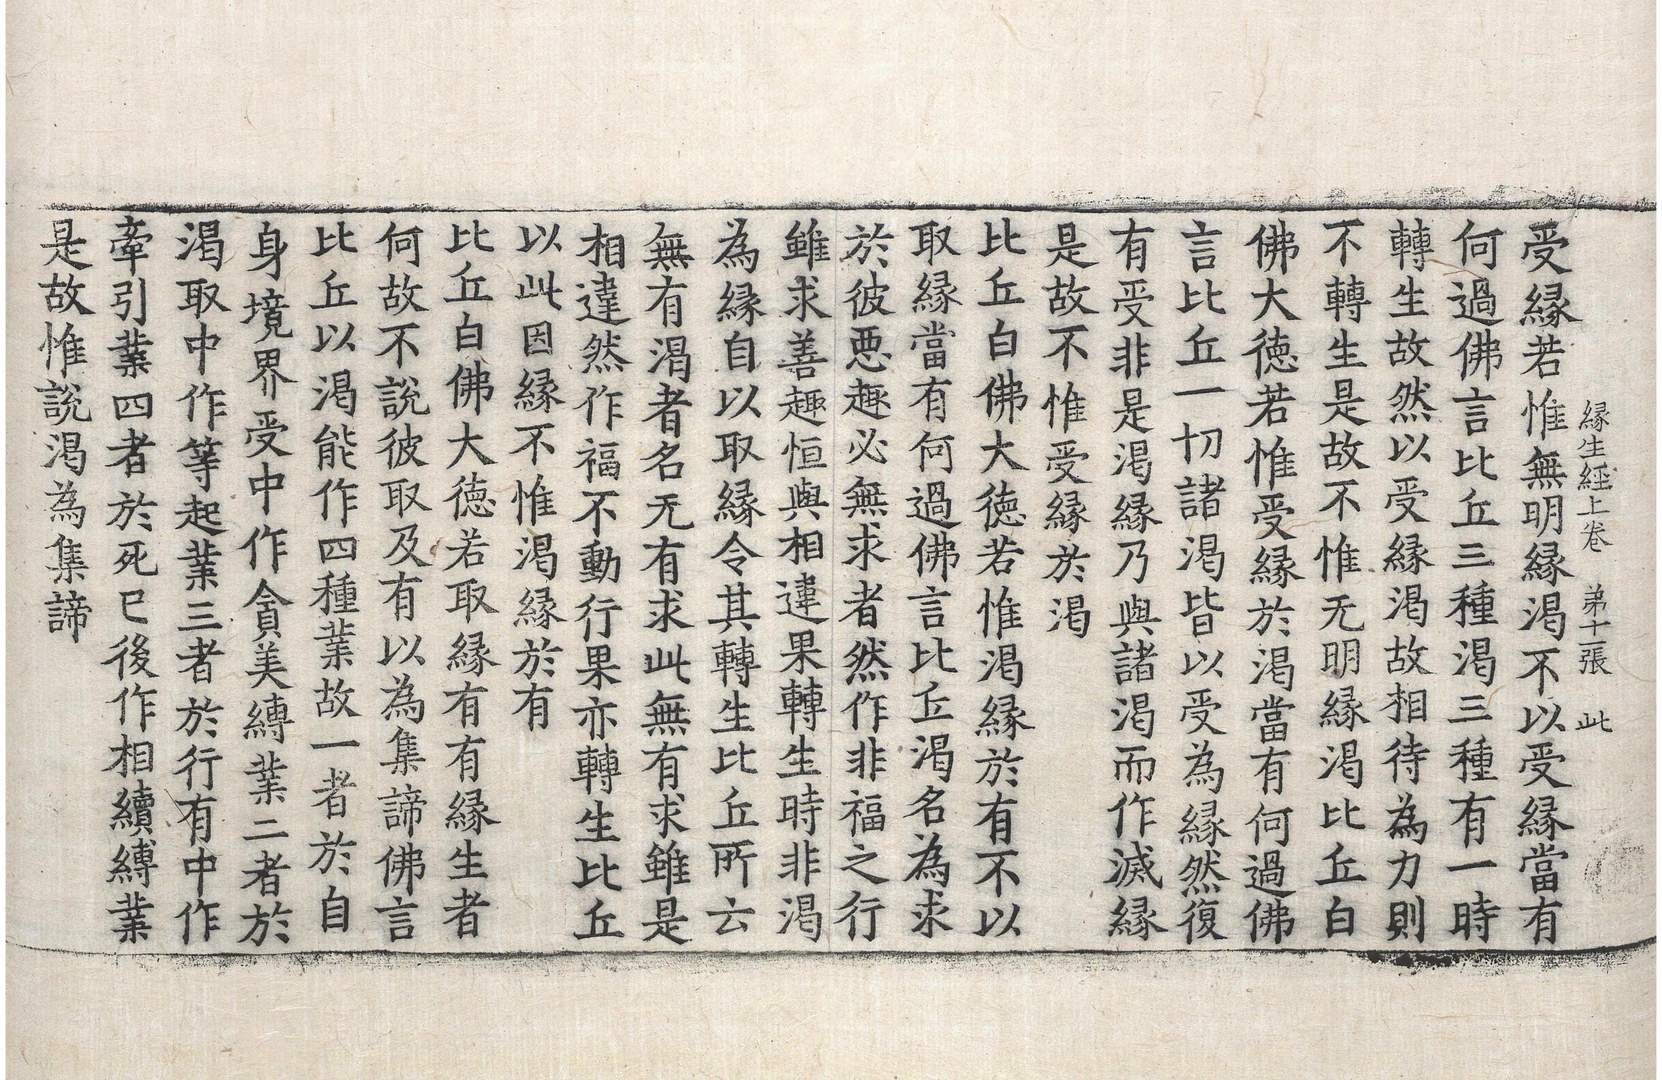 縁生經上卷　弟十一張　此
受縁若惟無明縁渇不以受縁當有
何過佛言比丘三種渇三種有一時
轉生故然以受縁渇故相待為力則
不轉生是故不惟无明縁渇比丘白
佛大徳若惟受縁於渇當有何過佛
言比丘一切諸渇皆以受為縁然復
有受非是渇縁乃與諸渇而作滅縁
是故不惟受縁於渇
比丘白佛大徳若惟渇縁於有不以
取縁當有何過佛言比丘渇名為求
於彼悪趣必無求者然作非福之行
雖求善趣恒與相違果轉生時非渇
為縁自以取縁令其轉生比丘所云
無有渇者名无有求此無有求雖是
相違然作福不動行果亦轉生比丘
以此因縁不惟渇縁於有
比丘白佛大徳若取縁有有縁生者
何故不說彼取及有以為集諦佛言
比丘以渇能作四種業故一者於自
身境界受中作貪美縛業二者於
渇取中作等起業三者於行有中作
牽引業四者於死巳後作相續縛業
是故惟說渇為集諦